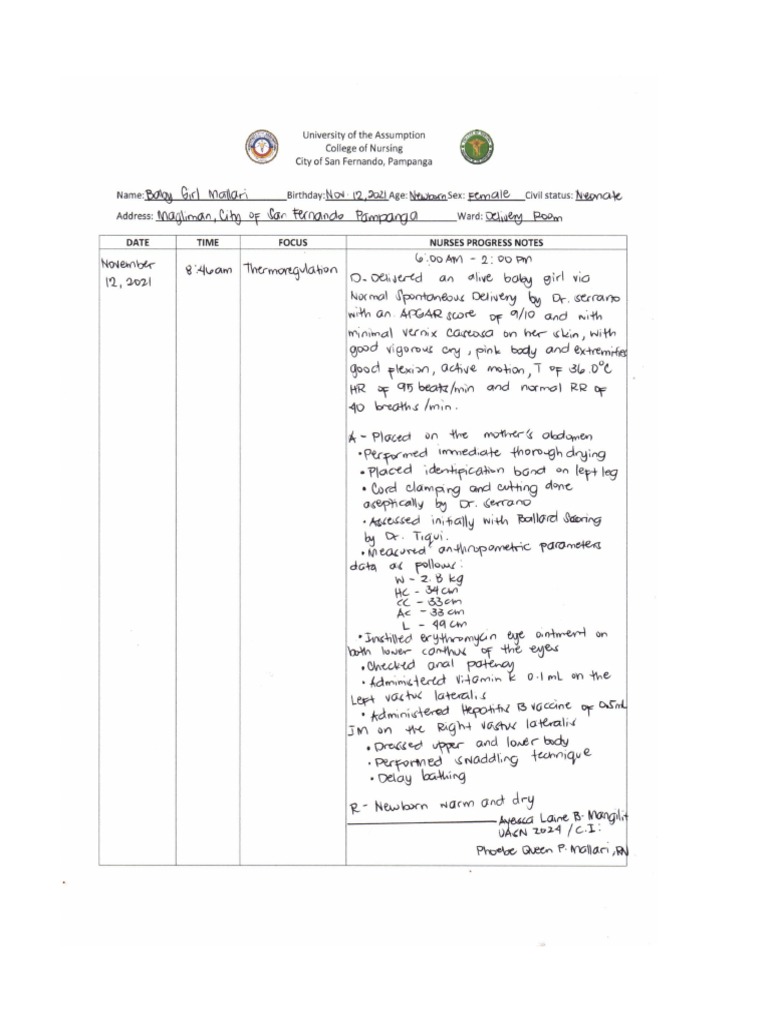 University of the Assumption
College of Nursing
City of San Fernando, Pampanga
Name: Baby Girl Mallari Birthday: Nov. 12, 2021 Age: Newborn Sex: Female Civil status: Neonate
Address: Magliman, City of San Fernando Pampanga Ward: Delivery Room
DATE TIME FOCUS NURSES PROGRESS NOTES
6:00 AM - 2:00 PM
November 12, 2021
8:46am
Thermoregulation
D- Delivered an alive baby girl via
Normal Spontaneous Delivery by Dr. Serrano
with an APGAR score of 9/10 and with
minimal vernix caseosa on her skin, with
good vigorous cry, pink body and extremities
good flexion, active motion, T of 36.0°C
HR of 95 beats/min and normal RR of
40 breaths/min.
A - Placed on the mother's abdomen
• Performed immediate thorough drying
• Placed identification band on left leg
• Cord clamping and cutting done
aseptically by Dr. Serrano
• Assessed initially with Ballard Scoring
by Dr. Tiqui.
• Measured anthropometric parameters
data as follows:
W - 2.8 kg
HC - 34cm
CC - 33cm
AC - 33cm
L - 49cm
• Instilled erythromycin eye ointment on
both lower canthus of the eyes
• Checked anal patency
• Administered Vitamin K 0.1mL on the
Left vastus lateralis
• Administered Hepatitis B vaccine of 0.5mL
IM on the Right vastus lateralis
• Dressed upper and lower body
• Performed swaddling technique
• Delay bathing
R - Newborn warm and dry
Ayesca Laine B. Mangilit
UACN 2024 / C.I:
Phoebe Queen P. Mallari, RN